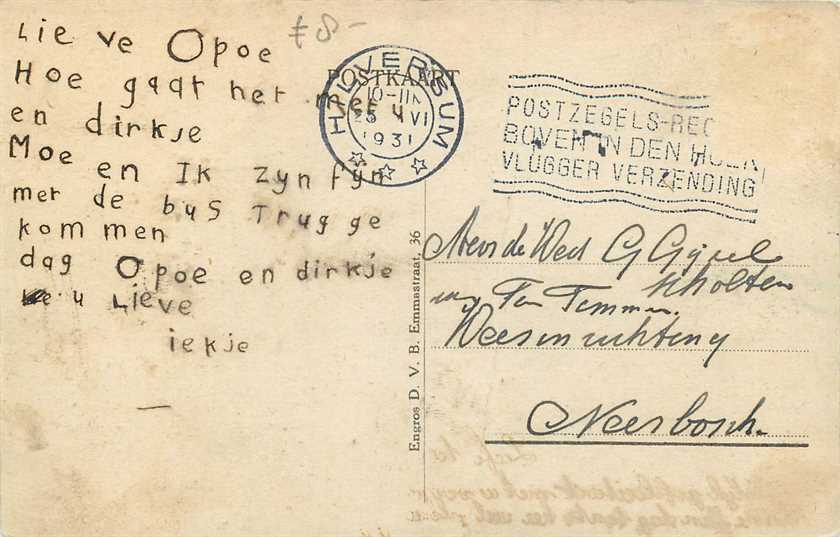 Lie ve Opoe
Hoe gaat het met u
en dirkje
Moe en Ik zyn fyn
met de bus Trug ge
kommen
dag Opoe en dirkje
u Lieve
iekje
£8-
POSTKAART
HILVERSUM
10-11
25 VI
1931
POSTZEGELS-REC
BOVEN IN DEN HOEK
VLUGGER VERZENDING
Engros D. V. B. Emmastraat, 36
de Wed G Gysel
Scholten
Ten
Weesinrichting
Neerbosch.